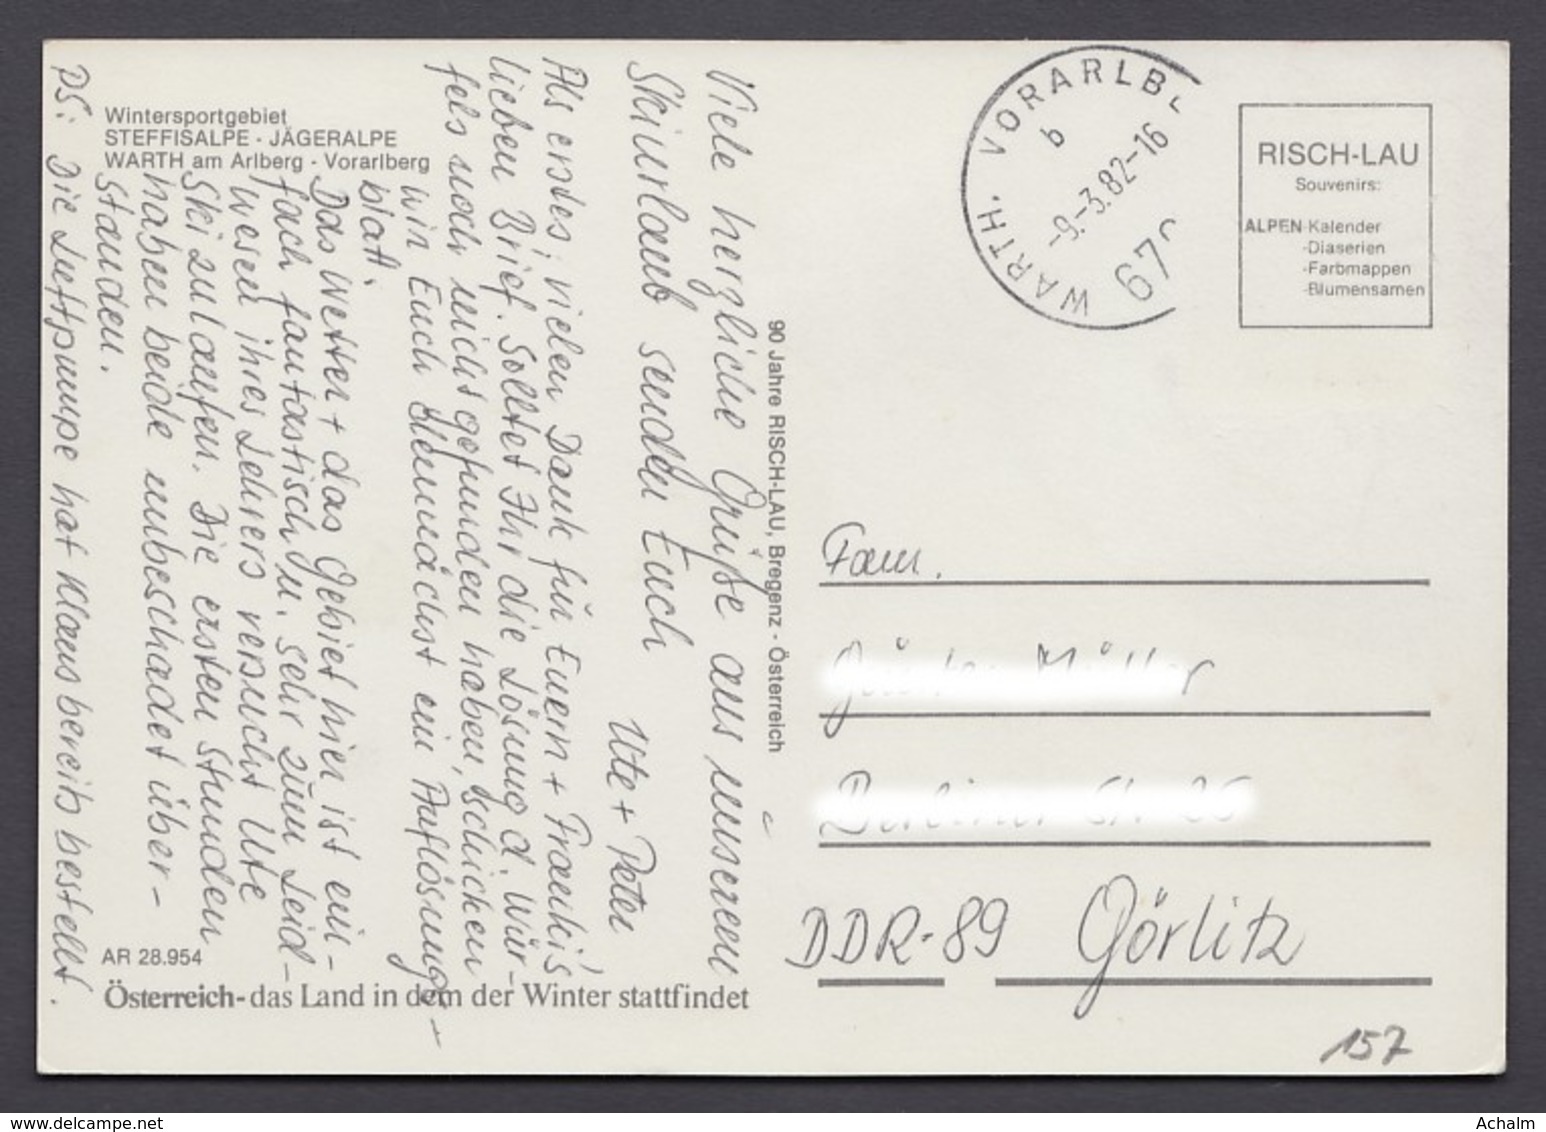 Wintersportgebiet
STEFFISALPE - JÄGERALPE
WARTH am Arlberg - Vorarlberg
Viele herzliche Grüße aus unserem
Skiurlaub senden Euch
Ute + Peter
Als erstes; vielen Dank für Euern + Frankis
lieben Brief. Solltet Ihr die Lösung d. Wür-
fels noch nicht gefunden haben, schicken
wir Euch demnächst ein Auflösungs-
blatt.
Das Wetter + das Gebiet hier ist ein-
fach fantastisch u. sehr zum Leid-
wesen ihres Lehrers versucht Ute
Ski zu laufen. Die ersten Stunden
haben beide unbeschadet über-
standen.
PS: Die Luftpumpe hat Klaus bereits bestellt.
AR 28.954
Österreich-das Land in dem der Winter stattfindet
90 Jahre RISCH-LAU, Bregenz - Österreich
WARTH. VORARLB
b
-9.-3.82-16
670
RISCH-LAU
Souvenirs:
ALPEN-Kalender
-Diaserien
-Farbmappen
-Blumensamen
Fam.
Müller
Berliner Str.
DDR-89 Görlitz
157
www.delcampe.net
Achalm